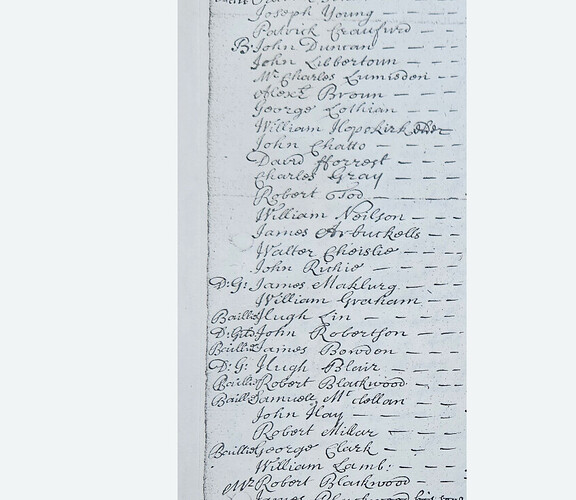 Joseph Young
Patrick Craufurd
B: John Duncan
John Libbertoun
Mr Charles Lumisden
Alexr Broun
George Lothian
William Hopekirk elder
John Chatto
David fforrest
Charles Gray
Robert Tod
William Neilson
James Arbuckells
Walter Cheislie
John Richie
D: G: James Maklurg
William Graham
Baillie Hugh Lin
D: Gild John Robertson
Baillie James Bowdon
D: G: Hugh Blair
Baillie Robert Blackwood
Baill Samuell Mcclellan
John Hay
Robert Millar
Baillie George Clark
William Lamb:
Mr Robert Blackwood
James his sone